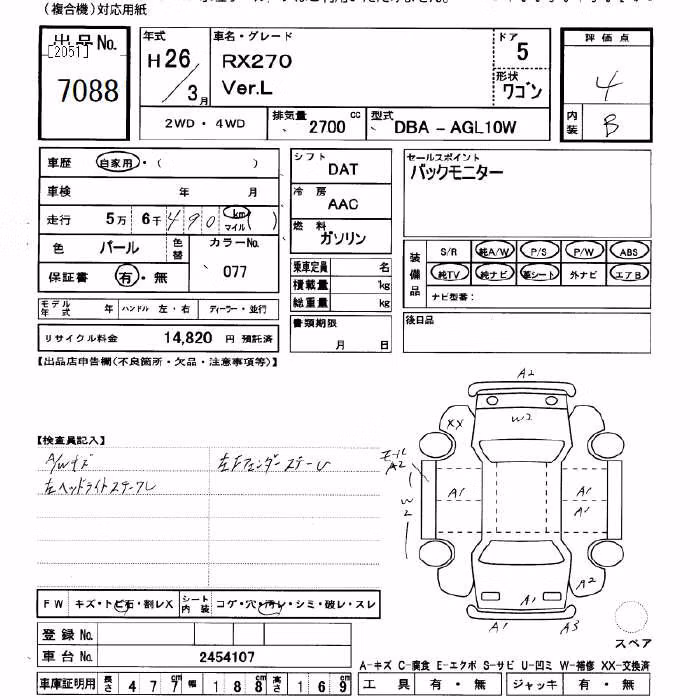 (複合機)対応用紙
出品No.
[2051]
7088
年式
H26/3月
車名・グレード
RX270
Ver.L
ドア
5
形状
ワゴン
評価点
4
内装
B
2WD・4WD
排気量 2700 cc
型式 DBA－AGL10W
車歴 自家用・( )
車検 年 月
走行 5万 6千 490 km マイル ( )
色 パール 色替
カラーNo.
077
保証書 有・無
シフト
DAT
冷房
AAC
燃料
ガソリン
セールスポイント
バックモニター
装備品
S/R 純A/W P/S P/W ABS
純TV 純ナビ 革シート 外ナビ エアB
ナビ型番:
乗車定員 名
積載量 kg
総重量 kg
モデル年式 年 ハンドル 左・右 ディーラー・並行
リサイクル料金 14,820 円 預託済
書類期限
月 日
後日品
【出品店申告欄(不良箇所・欠品・注意事項等)】
【検査員記入】
A/Wキズ
左Fフェンダーステーレ
左ヘッドライトステーフレ
A2
XX
W2
A2
W2
A1
A1
A1
A2
A1
A1
A3
スペア
FW キズ・トビ石・割レX
シート内装 コゲ・穴・汚レ・シミ・破レ・スレ
登録No.
車台No. 2454107
車庫証明用 長さ 477 幅 188 cm 高さ 169 cm
A-キズ C-腐食 E-エクボ S-サビ U-凹ミ W-補修 XX-交換済
工具 有・無 ジャッキ 有・無